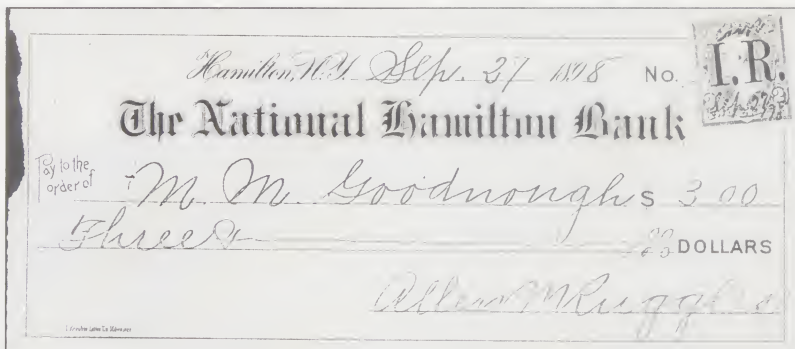 Hamilton, N.Y. Sep. 27 1898 No.
I.R.
Sep 27
The National Hamilton Bank
Pay to the order of M. M. Goodnough $ 3.00
Three & 00 DOLLARS
Allen M Ruggles